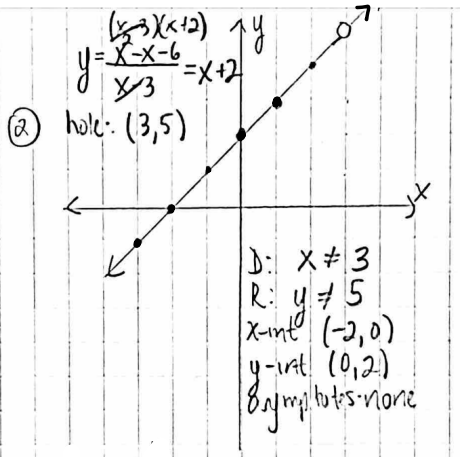 (x-3)(x+2)
y = x²-x-6 / x-3 = x+2
y
② hole: (3,5)
x
D: x ≠ 3
R: y ≠ 5
x-int (-2,0)
y-int (0,2)
asymptotes-none